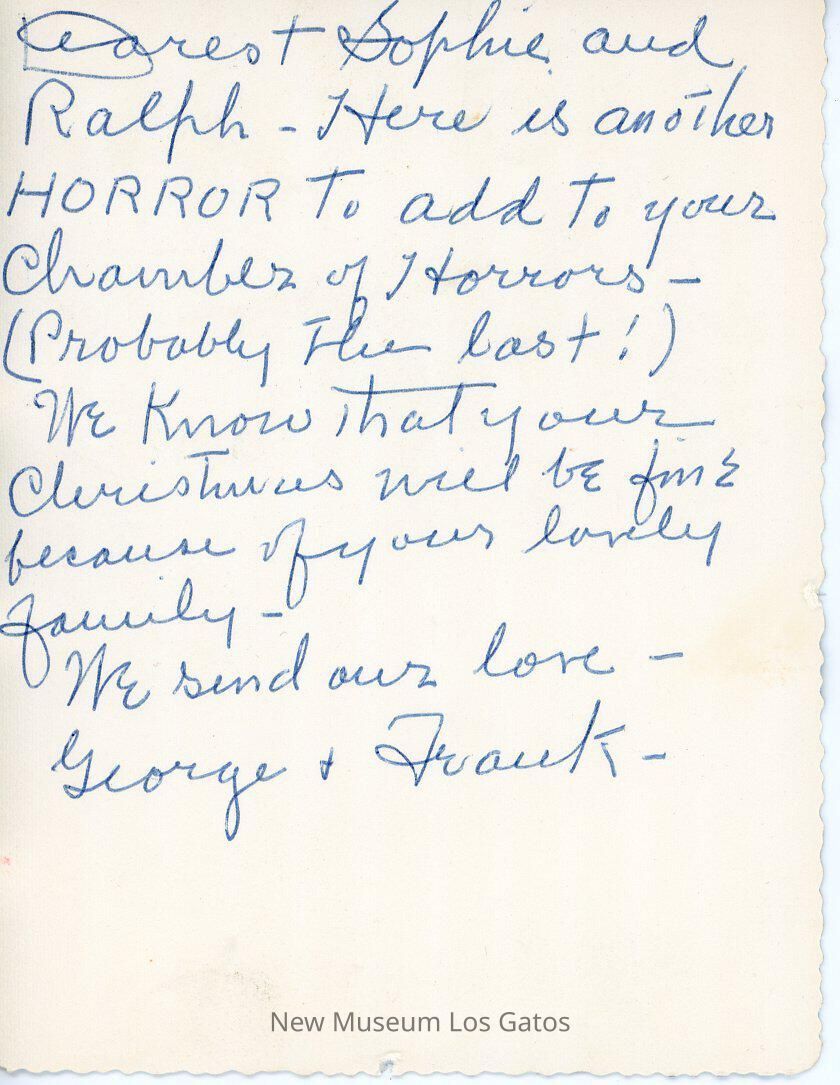 Dearest Sophie and
Ralph - Here is another
HORROR To add To your
Chamber of Horrors -
(Probably The last!)
We Know that your
Christmas will be fine
because of your lovely
family -
We send our love -
George + Frank -
New Museum Los Gatos